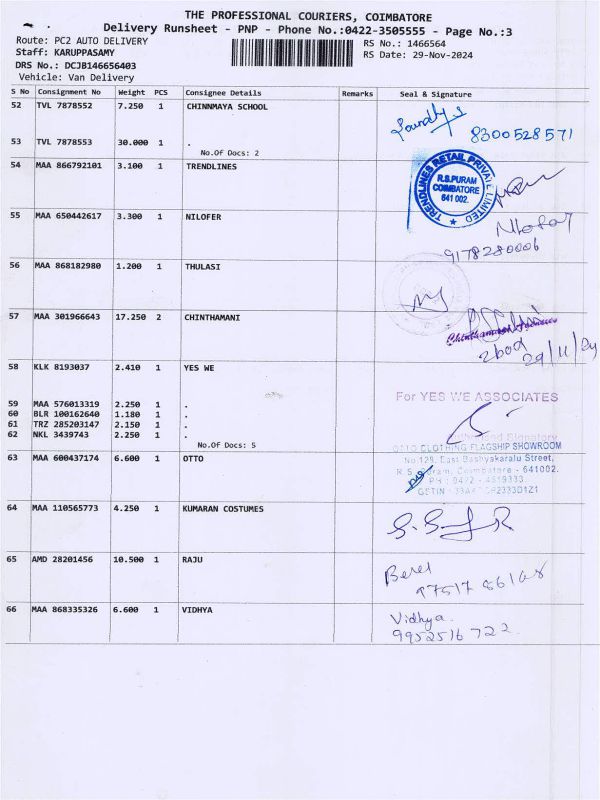 THE PROFESSIONAL COURIERS, COIMBATORE
Delivery Runsheet - PNP - Phone No.:0422-3505555 - Page No.:3
Route: PC2 AUTO DELIVERY
RS No.: 1466564
Staff: KARUPPASAMY
RS Date: 29-Nov-2024
DRS No.: DCJB146656403
Vehicle: Van Delivery
S No Consignment No Weight PCS Consignee Details Remarks Seal & Signature
52 TVL 7878552 7.250 1 CHINNMAYA SCHOOL
8300528571
53 TVL 7878553 30.000 1 .
No.Of Docs: 2
54 MAA 866792101 3.100 1 TRENDLINES
TRENDLINES RETAIL PRIVATE LIMITED
R.S.PURAM
COIMBATORE
641 002.
55 MAA 650442617 3.300 1 NILOFER
Nilofar
9178280006
56 MAA 868182980 1.200 1 THULASI
57 MAA 301966643 17.250 2 CHINTHAMANI
29/11/24
58 KLK 8193037 2.410 1 YES WE
For YES WE ASSOCIATES
59 MAA 576013319 2.250 1 .
60 BLR 100162640 1.180 1 .
61 TRZ 285203147 2.150 1 .
62 NKL 3439743 2.250 1 .
Authorised Signatory
No.Of Docs: 5
63 MAA 600437174 6.600 1 OTTO
OTTO CLOTHING FLAGSHIP SHOWROOM
No.129, East Bashyakaralu Street,
R.S. Puram, Coimbatore - 641002.
PH : 0422 - 4519333
GSTIN
64 MAA 110565773 4.250 1 KUMARAN COSTUMES
65 AMD 28201456 10.500 1 RAJU
66 MAA 868335326 6.600 1 VIDHYA
Vidhya.
9952516722